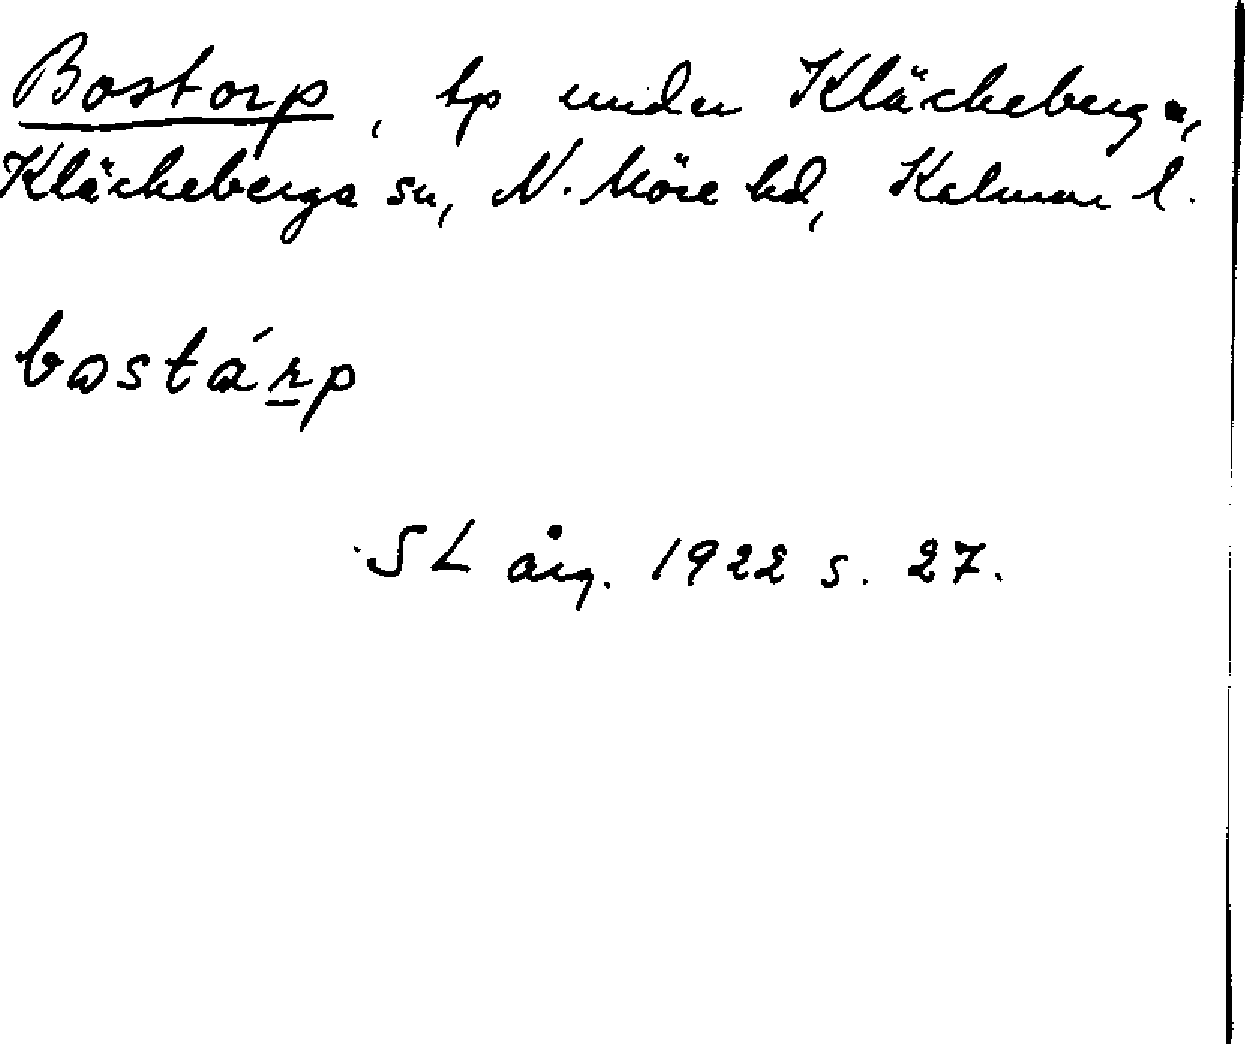 Bostorp, tp under Kläckeberga,
Kläckeberga sn, N. Möre hd, Kalmar l.
bostárp
SL årg. 1922 s. 27.